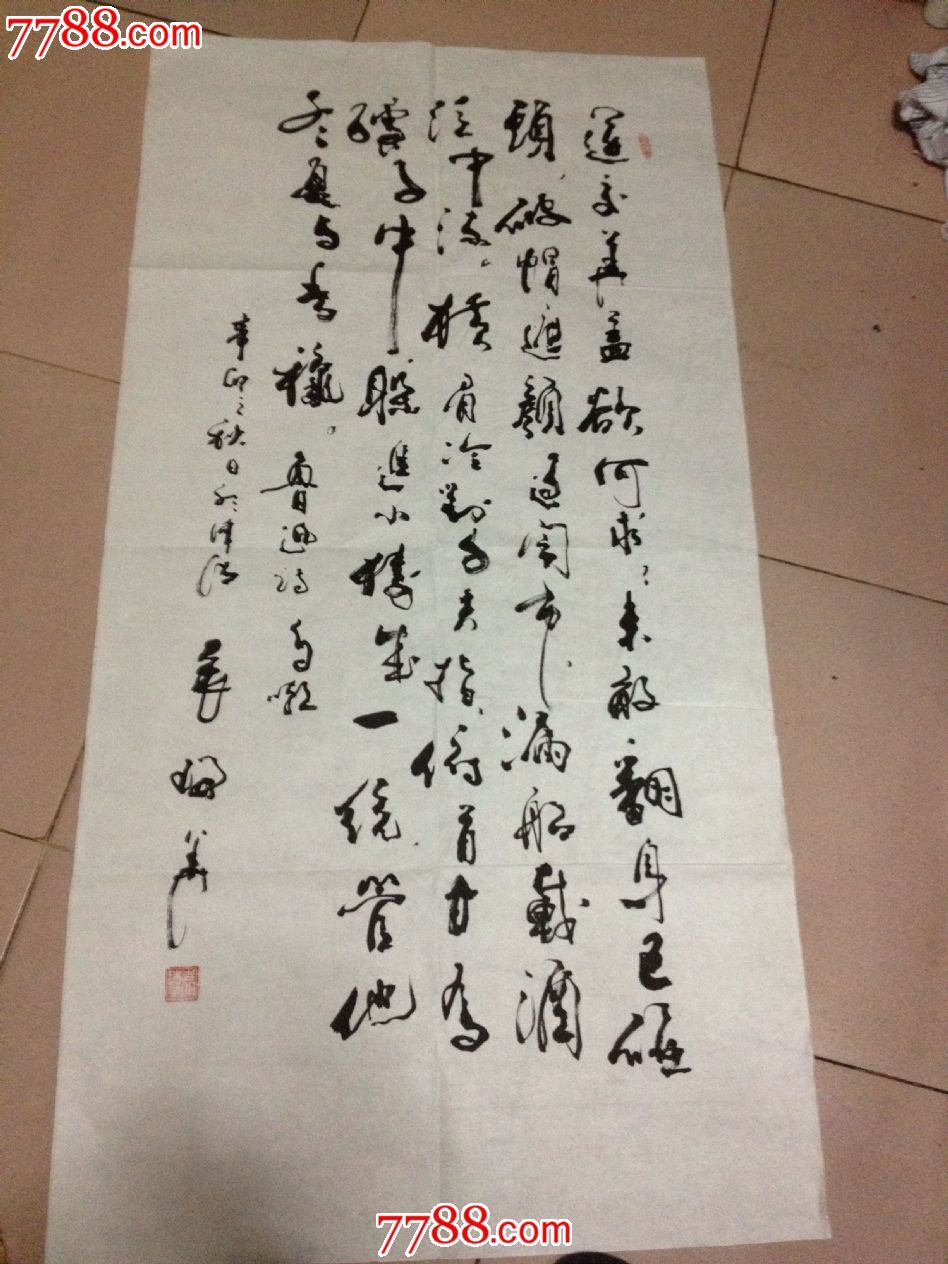 7788.com
運交華盖欲何求未敢翻身已碰
頭破帽遮顏過鬧市漏船載酒
泛中流橫眉冷對千夫指俯首甘為
孺子牛躲進小樓成一統管他
冬夏与春龝魯迅诗自嘲
辛卯之秋日於津沽
7788.com